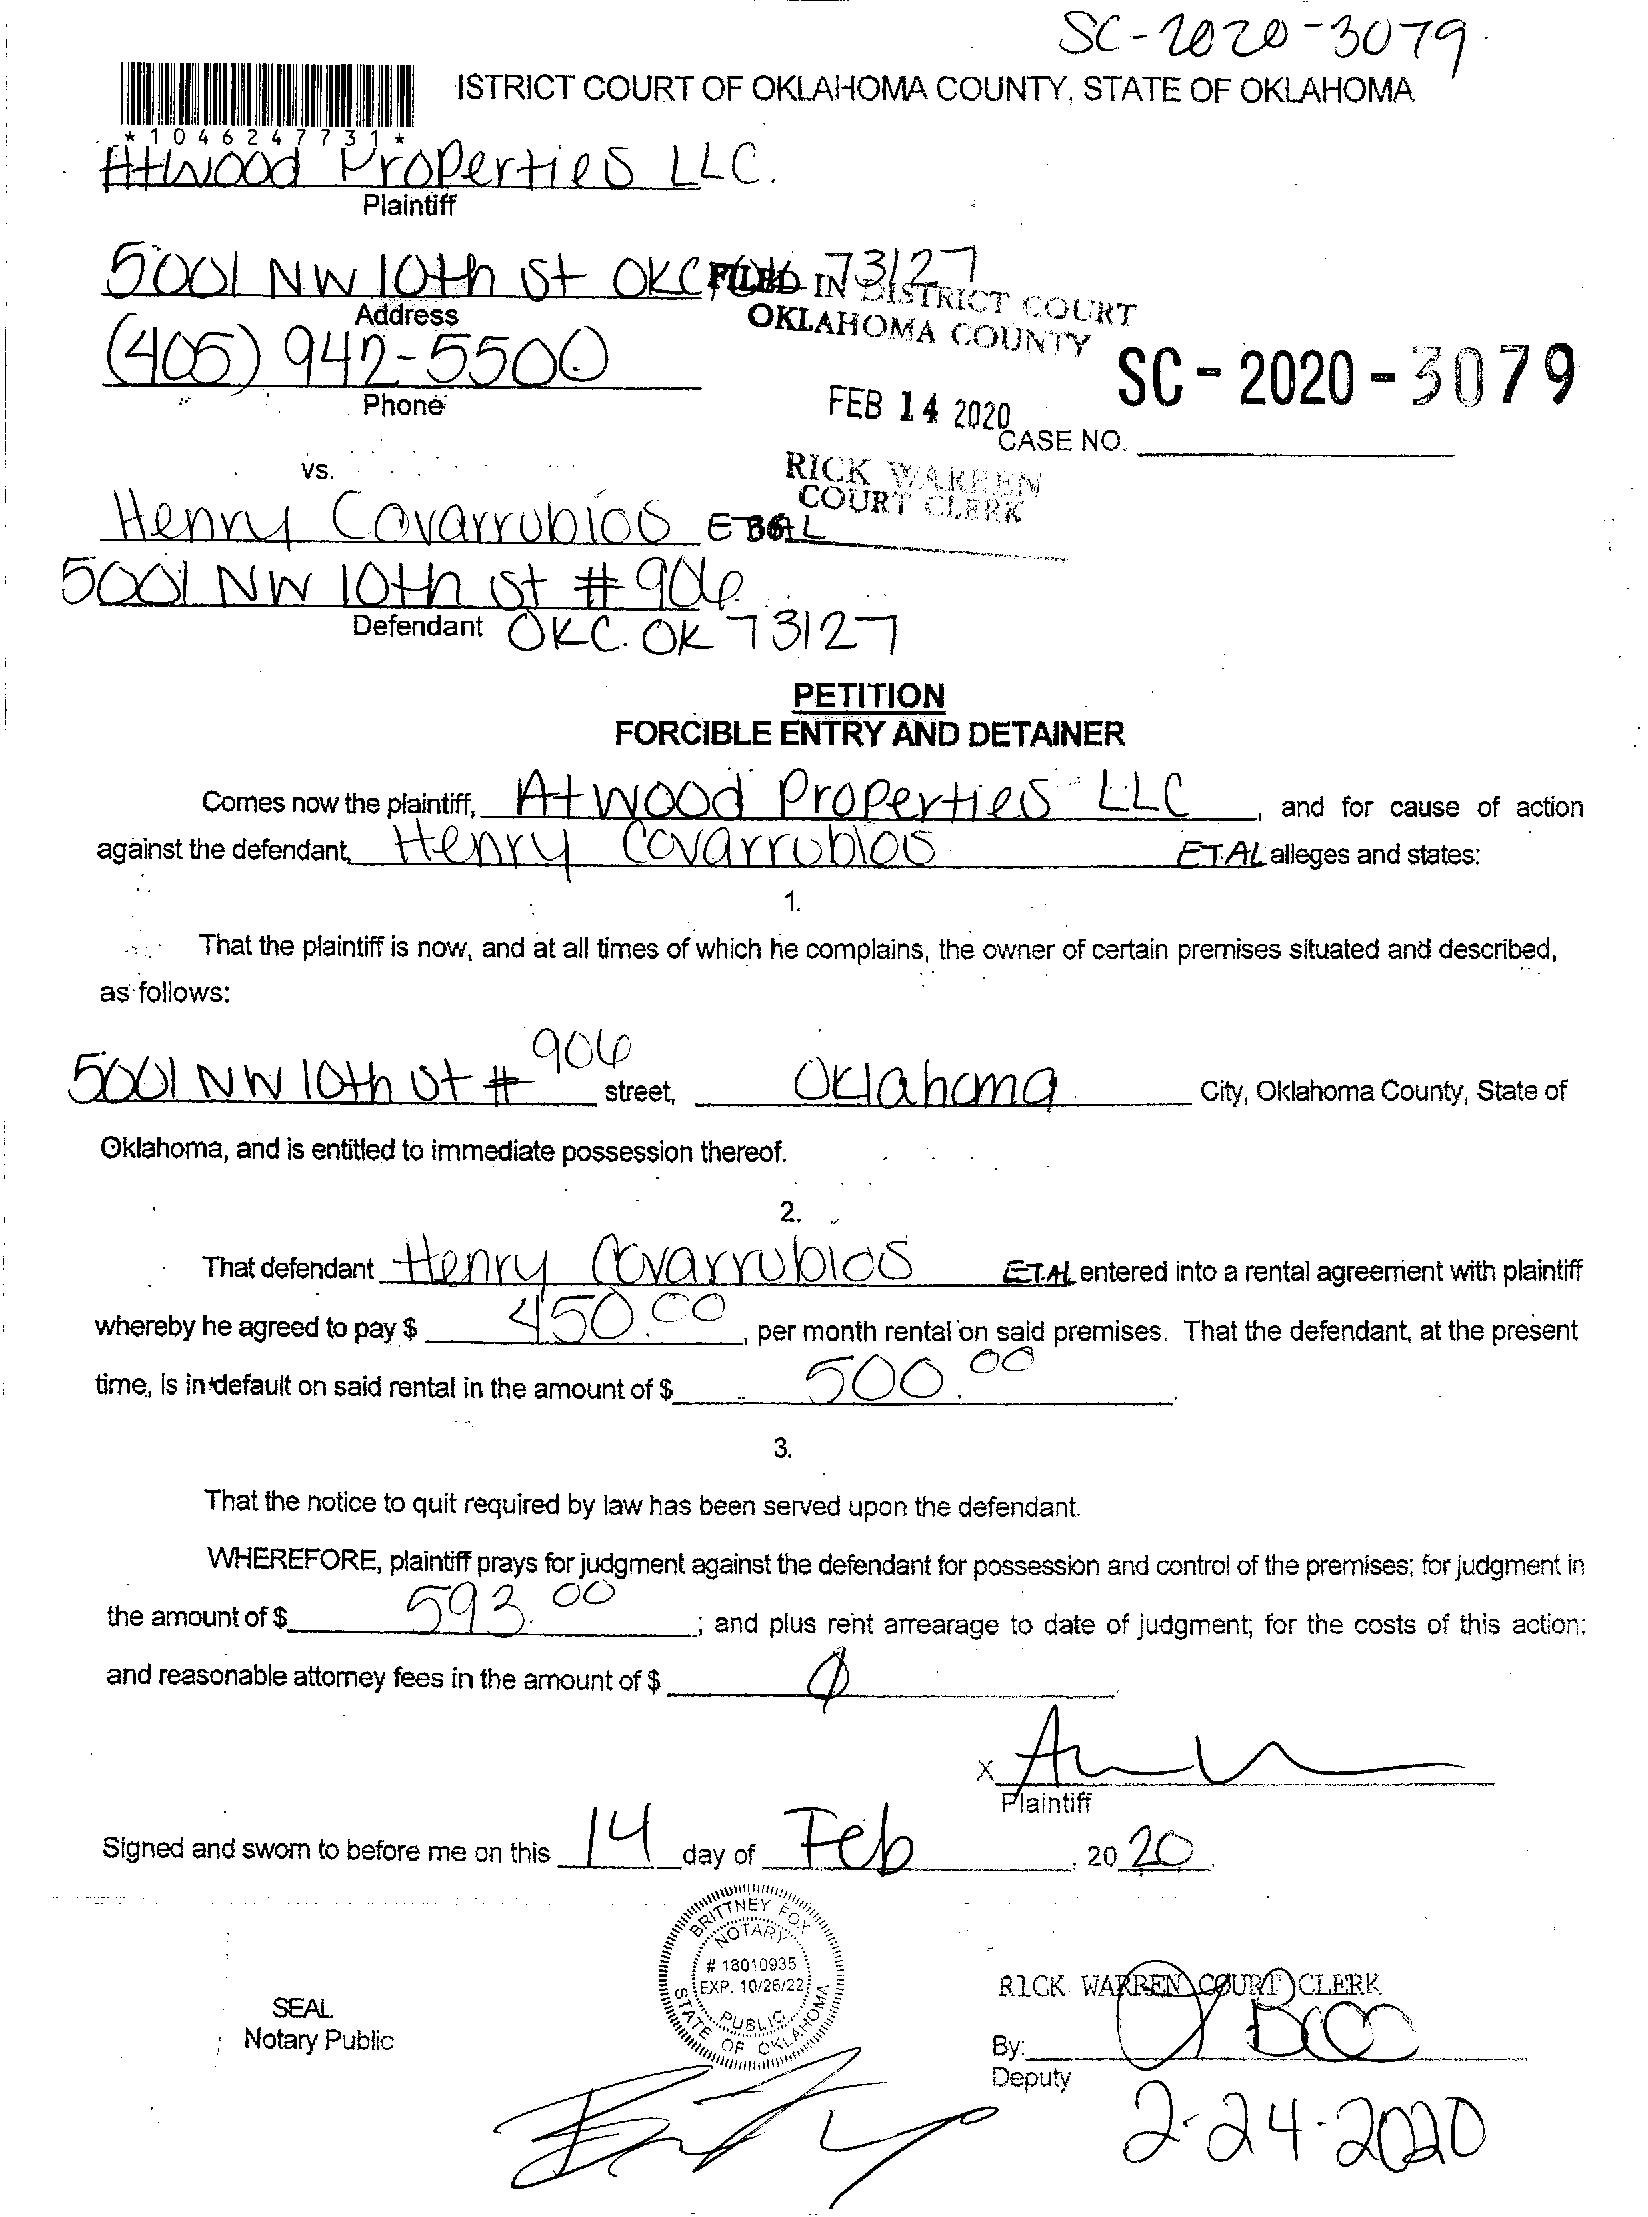 SC-2020-3079
ISTRICT COURT OF OKLAHOMA COUNTY, STATE OF OKLAHOMA
*1046247731*
Atwood Properties LLC.
Plaintiff
5001 NW 10th St OKC 73127
FILED IN DISTRICT COURT
Address
OKLAHOMA COUNTY
(405) 942-5500
SC-2020-3079
Phone
FEB 14 2020
CASE NO.
vs.
RICK WARREN
COURT CLERK
Henry Covarrubios ET AL
5001 NW 10th St # 906
Defendant OKC. OK 73127
PETITION
FORCIBLE ENTRY AND DETAINER
Comes now the plaintiff, Atwood Properties LLC, and for cause of action
against the defendant, Henry Covarrubios ET.AL alleges and states:
1.
That the plaintiff is now, and at all times of which he complains, the owner of certain premises situated and described,
as follows:
5001 NW 10th St # 906 street, Oklahoma City, Oklahoma County, State of
Oklahoma, and is entitled to immediate possession thereof.
2.
That defendant Henry Covarrubios ET.AL entered into a rental agreement with plaintiff
whereby he agreed to pay $ 450.00, per month rental on said premises. That the defendant, at the present
time, is in default on said rental in the amount of $ 500.00.
3.
That the notice to quit required by law has been served upon the defendant.
WHEREFORE, plaintiff prays for judgment against the defendant for possession and control of the premises; for judgment in
the amount of $ 593.00; and plus rent arrearage to date of judgment; for the costs of this action;
and reasonable attorney fees in the amount of $ 0.
X
Plaintiff
Signed and sworn to before me on this 14 day of Feb, 20 20.
BRITTNEY FOX
NOTARY
# 18010935
EXP. 10/26/22
PUBLIC
STATE OF OKLAHOMA
SEAL
Notary Public
RICK WARREN COURT CLERK
By:
Deputy
2-24-2020